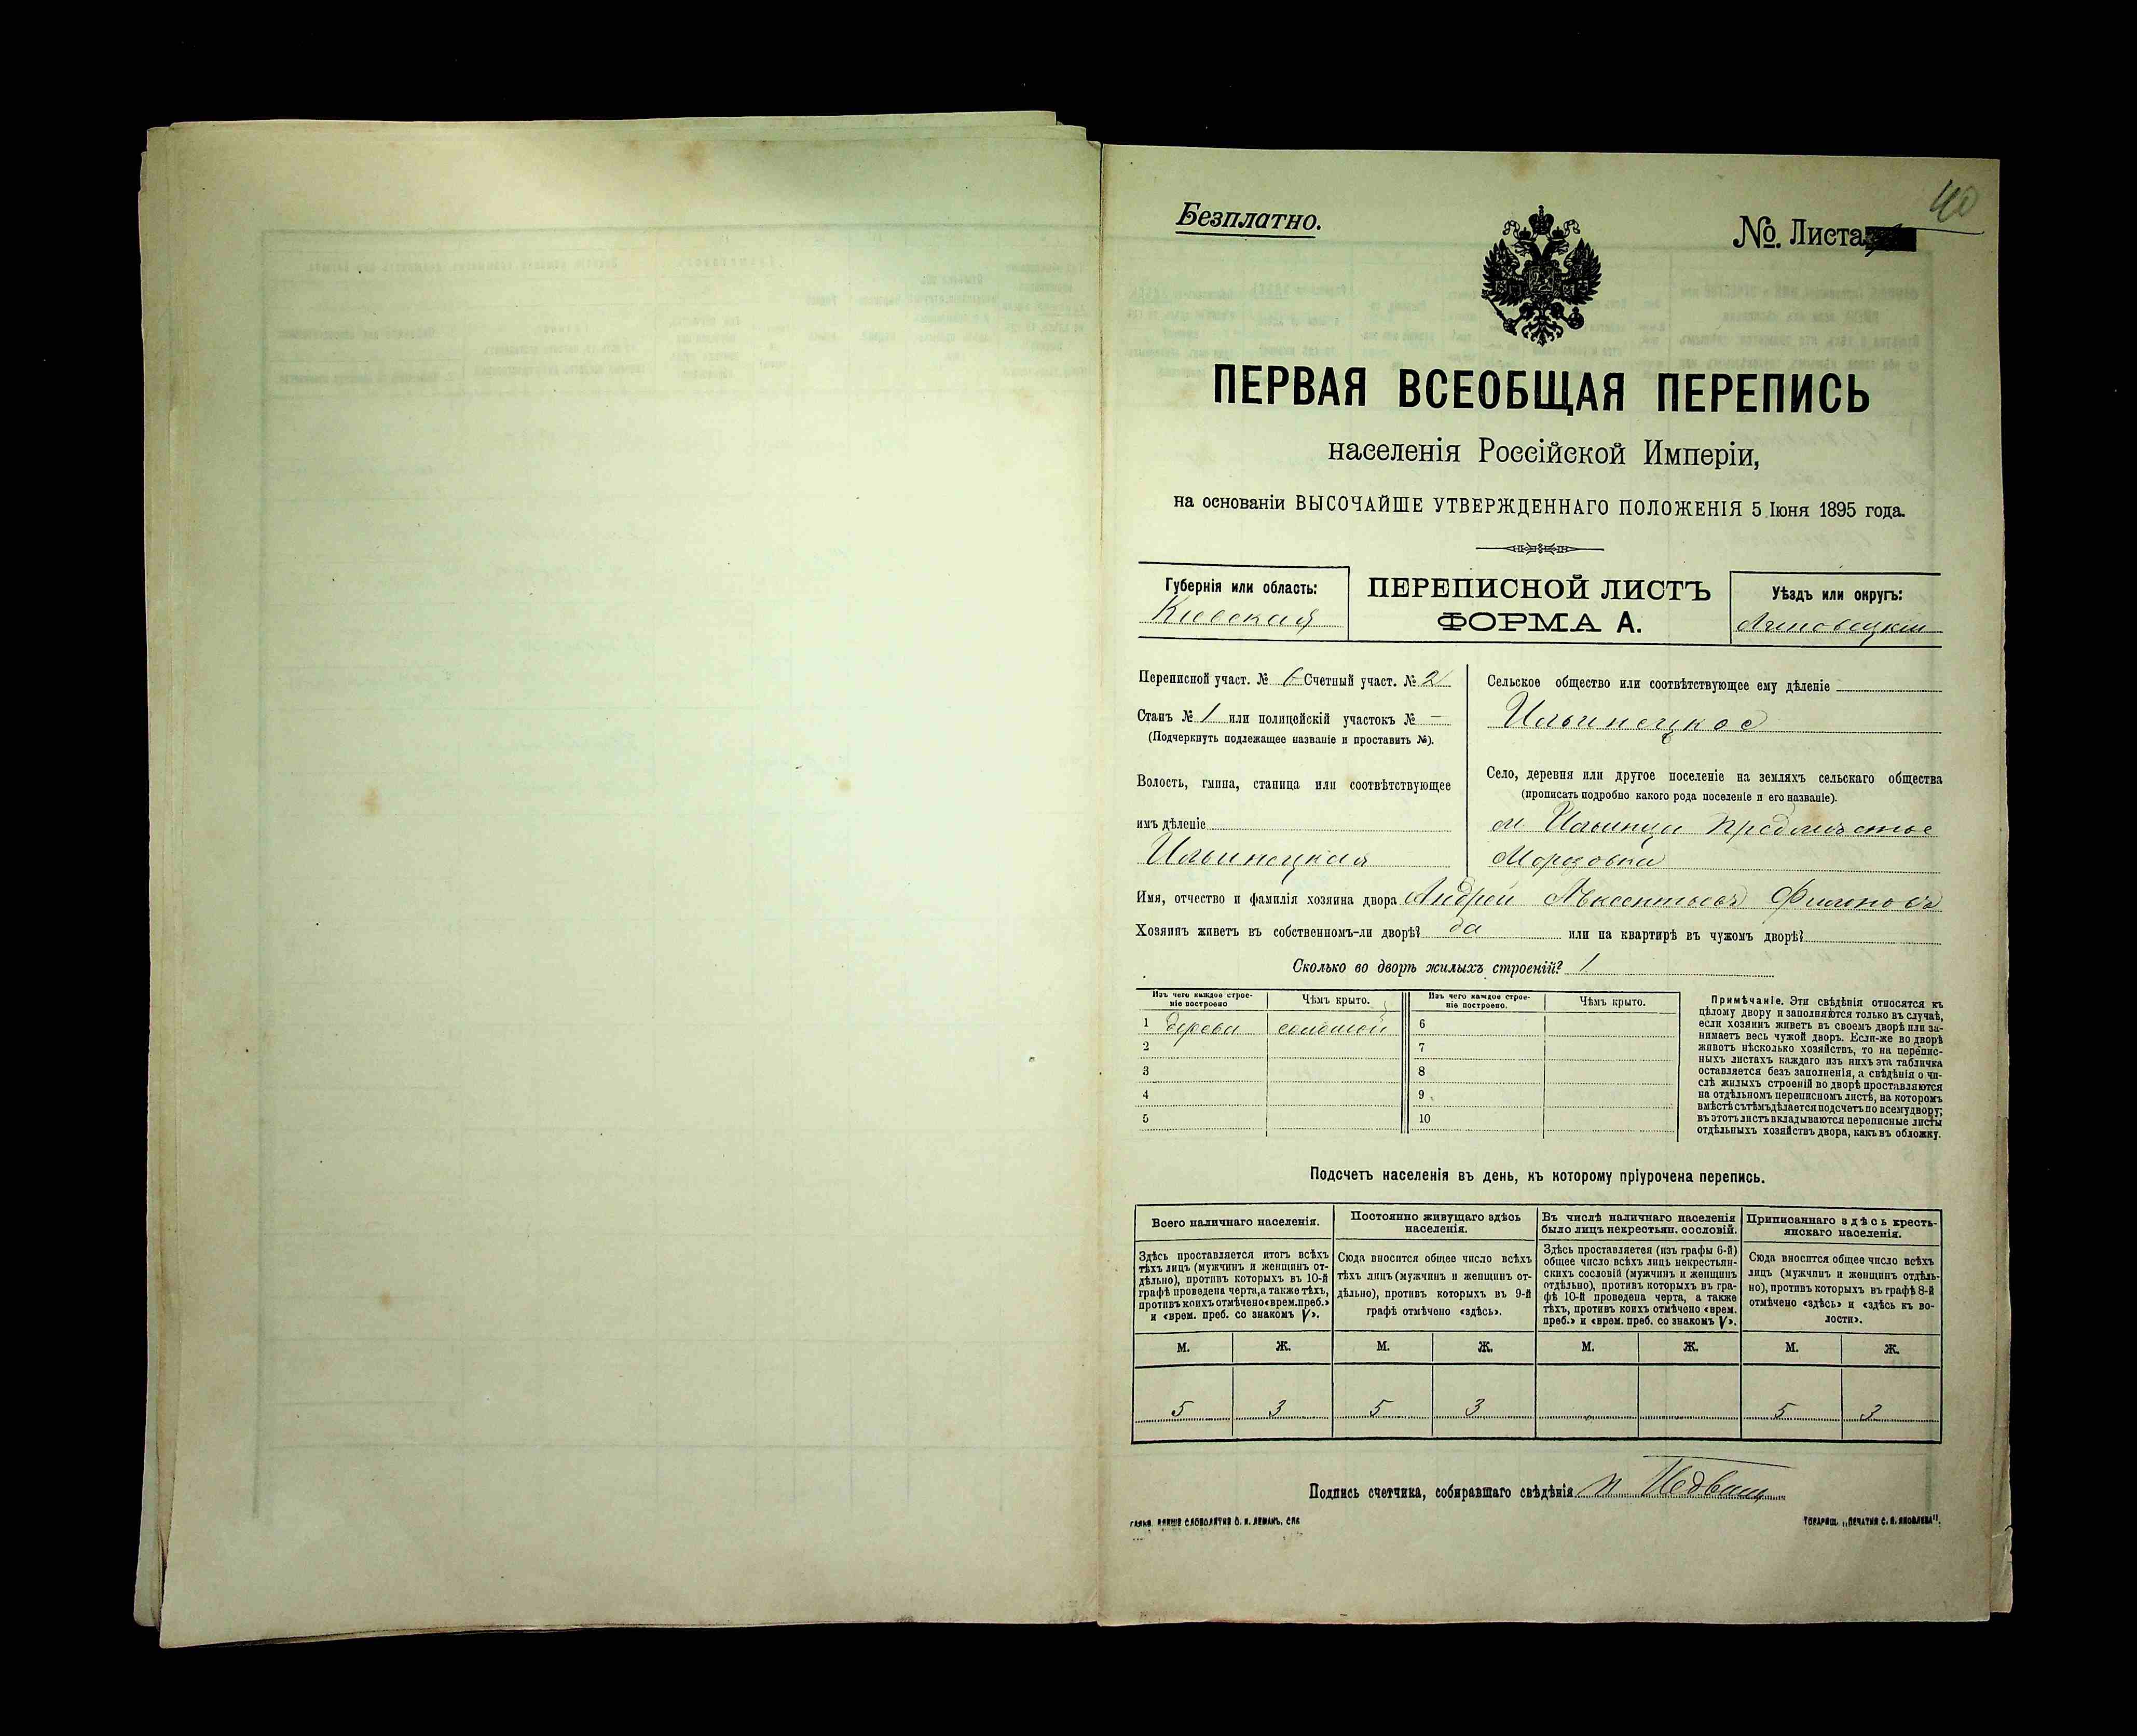 40
Безплатно.
№. Листа
ПЕРВАЯ ВСЕОБЩАЯ ПЕРЕПИСЬ
населенія Россійской Имперіи,
на основаніи ВЫСОЧАЙШЕ УТВЕРЖДЕННАГО ПОЛОЖЕНІЯ 5 Іюня 1895 года.
Губернія или область:
Киевская
ПЕРЕПИСНОЙ ЛИСТЪ
ФОРМА А.
Уѣздъ или округъ:
Липовецкій
Переписной участ. № 6 Счетный участ. № 2
Станъ № 1 или полицейскій участокъ № —
(Подчеркнуть подлежащее названіе и проставить №).
Волость, гмина, станица или соотвѣтствующее
имъ дѣленіе
Ильинецкая
Сельское общество или соотвѣтствующее ему дѣленіе
Ильинецкое
Село, деревня или другое поселеніе на земляхъ сельскаго общества
(прописать подробно какого рода поселеніе и его названіе).
м Ильинцы предмѣстье
Морозовка
Имя, отчество и фамилія хозяина двора Андрей Авксентьевъ
Хозяинъ живетъ въ собственномъ-ли дворѣ? да или на квартирѣ въ чужомъ дворѣ?
Сколько во дворѣ жилыхъ строеній? 1
Изъ чего каждое строе-
ніе построено
Чѣмъ крыто.
Изъ чего каждое строе-
ніе построено.
Чѣмъ крыто.
1 дерева соломой 6
2 7
3 8
4 9
5 10
Примѣчаніе. Эти свѣдѣнія относятся къ
цѣлому двору и заполняются только въ случаѣ,
если хозяинъ живетъ въ своемъ дворѣ или за-
нимаетъ весь чужой дворъ. Если-же во дворѣ
животъ нѣсколько хозяйствъ, то на перепис-
ныхъ листахъ каждаго изъ нихъ эта табличка
оставляется безъ заполненія, а свѣдѣнія о чи-
слѣ жилыхъ строеній во дворѣ проставляются
на отдѣльномъ переписномъ листѣ, на которомъ
вмѣстѣ съ тѣмъ дѣлается подсчетъ по всему двору;
въ этотъ листъ вкладываются переписные листы
отдѣльныхъ хозяйствъ двора, какъ въ обложку.
Подсчетъ населенія въ день, къ которому пріурочена перепись.
Всего наличнаго населенія.
Здѣсь проставляется итогъ всѣхъ
тѣхъ лицъ (мужчинъ и женщинъ от-
дѣльно), противъ которыхъ въ 10-й
графѣ проведена черта, а также тѣхъ,
противъ коихъ отмѣчено «врем. преб.»
и «врем. преб. со знакомъ V».
Постоянно живущаго здѣсь
населенія.
Сюда вносится общее число всѣхъ
тѣхъ лицъ (мужчинъ и женщинъ от-
дѣльно), противъ которыхъ въ 9-й
графѣ отмѣчено «здѣсь».
Въ числѣ наличнаго населенія
было лицъ некрестьян. сословій.
Здѣсь проставляется (изъ графы 6-й)
общее число всѣхъ лицъ некрестьян-
скихъ сословій (мужчинъ и женщинъ
отдѣльно), противъ которыхъ въ гра-
фѣ 10-й проведена черта, а также
тѣхъ, противъ коихъ отмѣчено «врем.
преб.» и «врем. преб. со знакомъ V».
Приписаннаго здѣсь кресть-
янскаго населенія.
Сюда вносится общее число всѣхъ
лицъ (мужчинъ и женщинъ отдѣль-
но), противъ которыхъ въ графѣ 8-й
отмѣчено «здѣсь» и «здѣсь къ во-
лости».
М. Ж. М. Ж. М. Ж. М. Ж.
5 3 5 3 5 3
Подпись счетчика, собиравшаго свѣдѣнія
СЛОВОЛИТНЯ О. И. ЛЕМАНЪ, СПБ
ТОВАРИЩ. „ПЕЧАТНЯ С. П. ЯКОВЛЕВА".